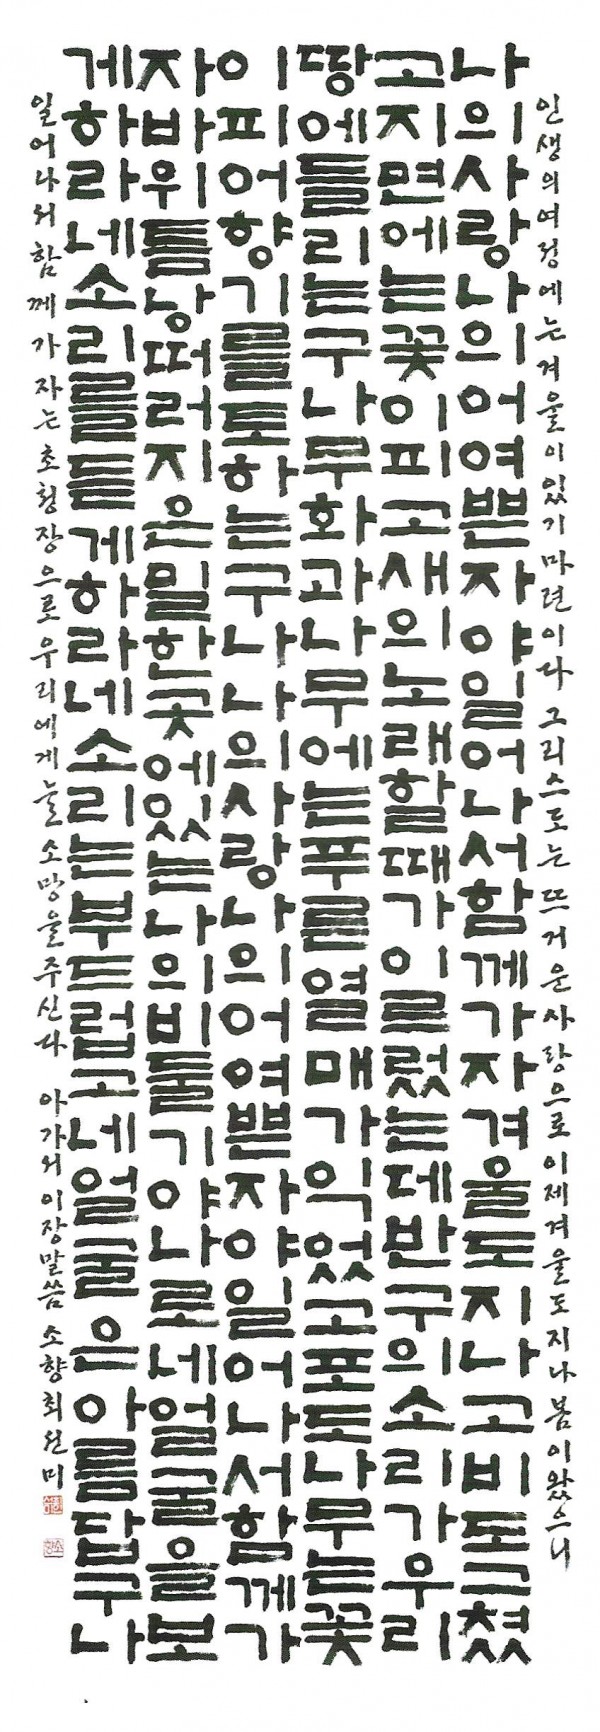 인생의여정에는겨울이있기마련이다그리스도는뜨거운사랑으로이제겨울도지나봄이왔으니
나의사랑나의어여쁜자야일어나서함께가자겨울도지나고비도그쳤
고지면에는꽃이피고새의노래할때가이르렀는데반구의소리가우리
땅에들리는구나무화과나무에는푸른열매가익었고포도나무는꽃
이피어향기를토하는구나나의사랑나의어여쁜자야일어나서함께가
자바위틈낭떠러지은밀한곳에있는나의비둘기야나로네얼굴을보
게하라네소리를듣게하라네소리는부드럽고네얼굴은아름답구나
일어나서함께가자는초청장으로우리에게늘소망을주신다 아가서이장말씀 소향